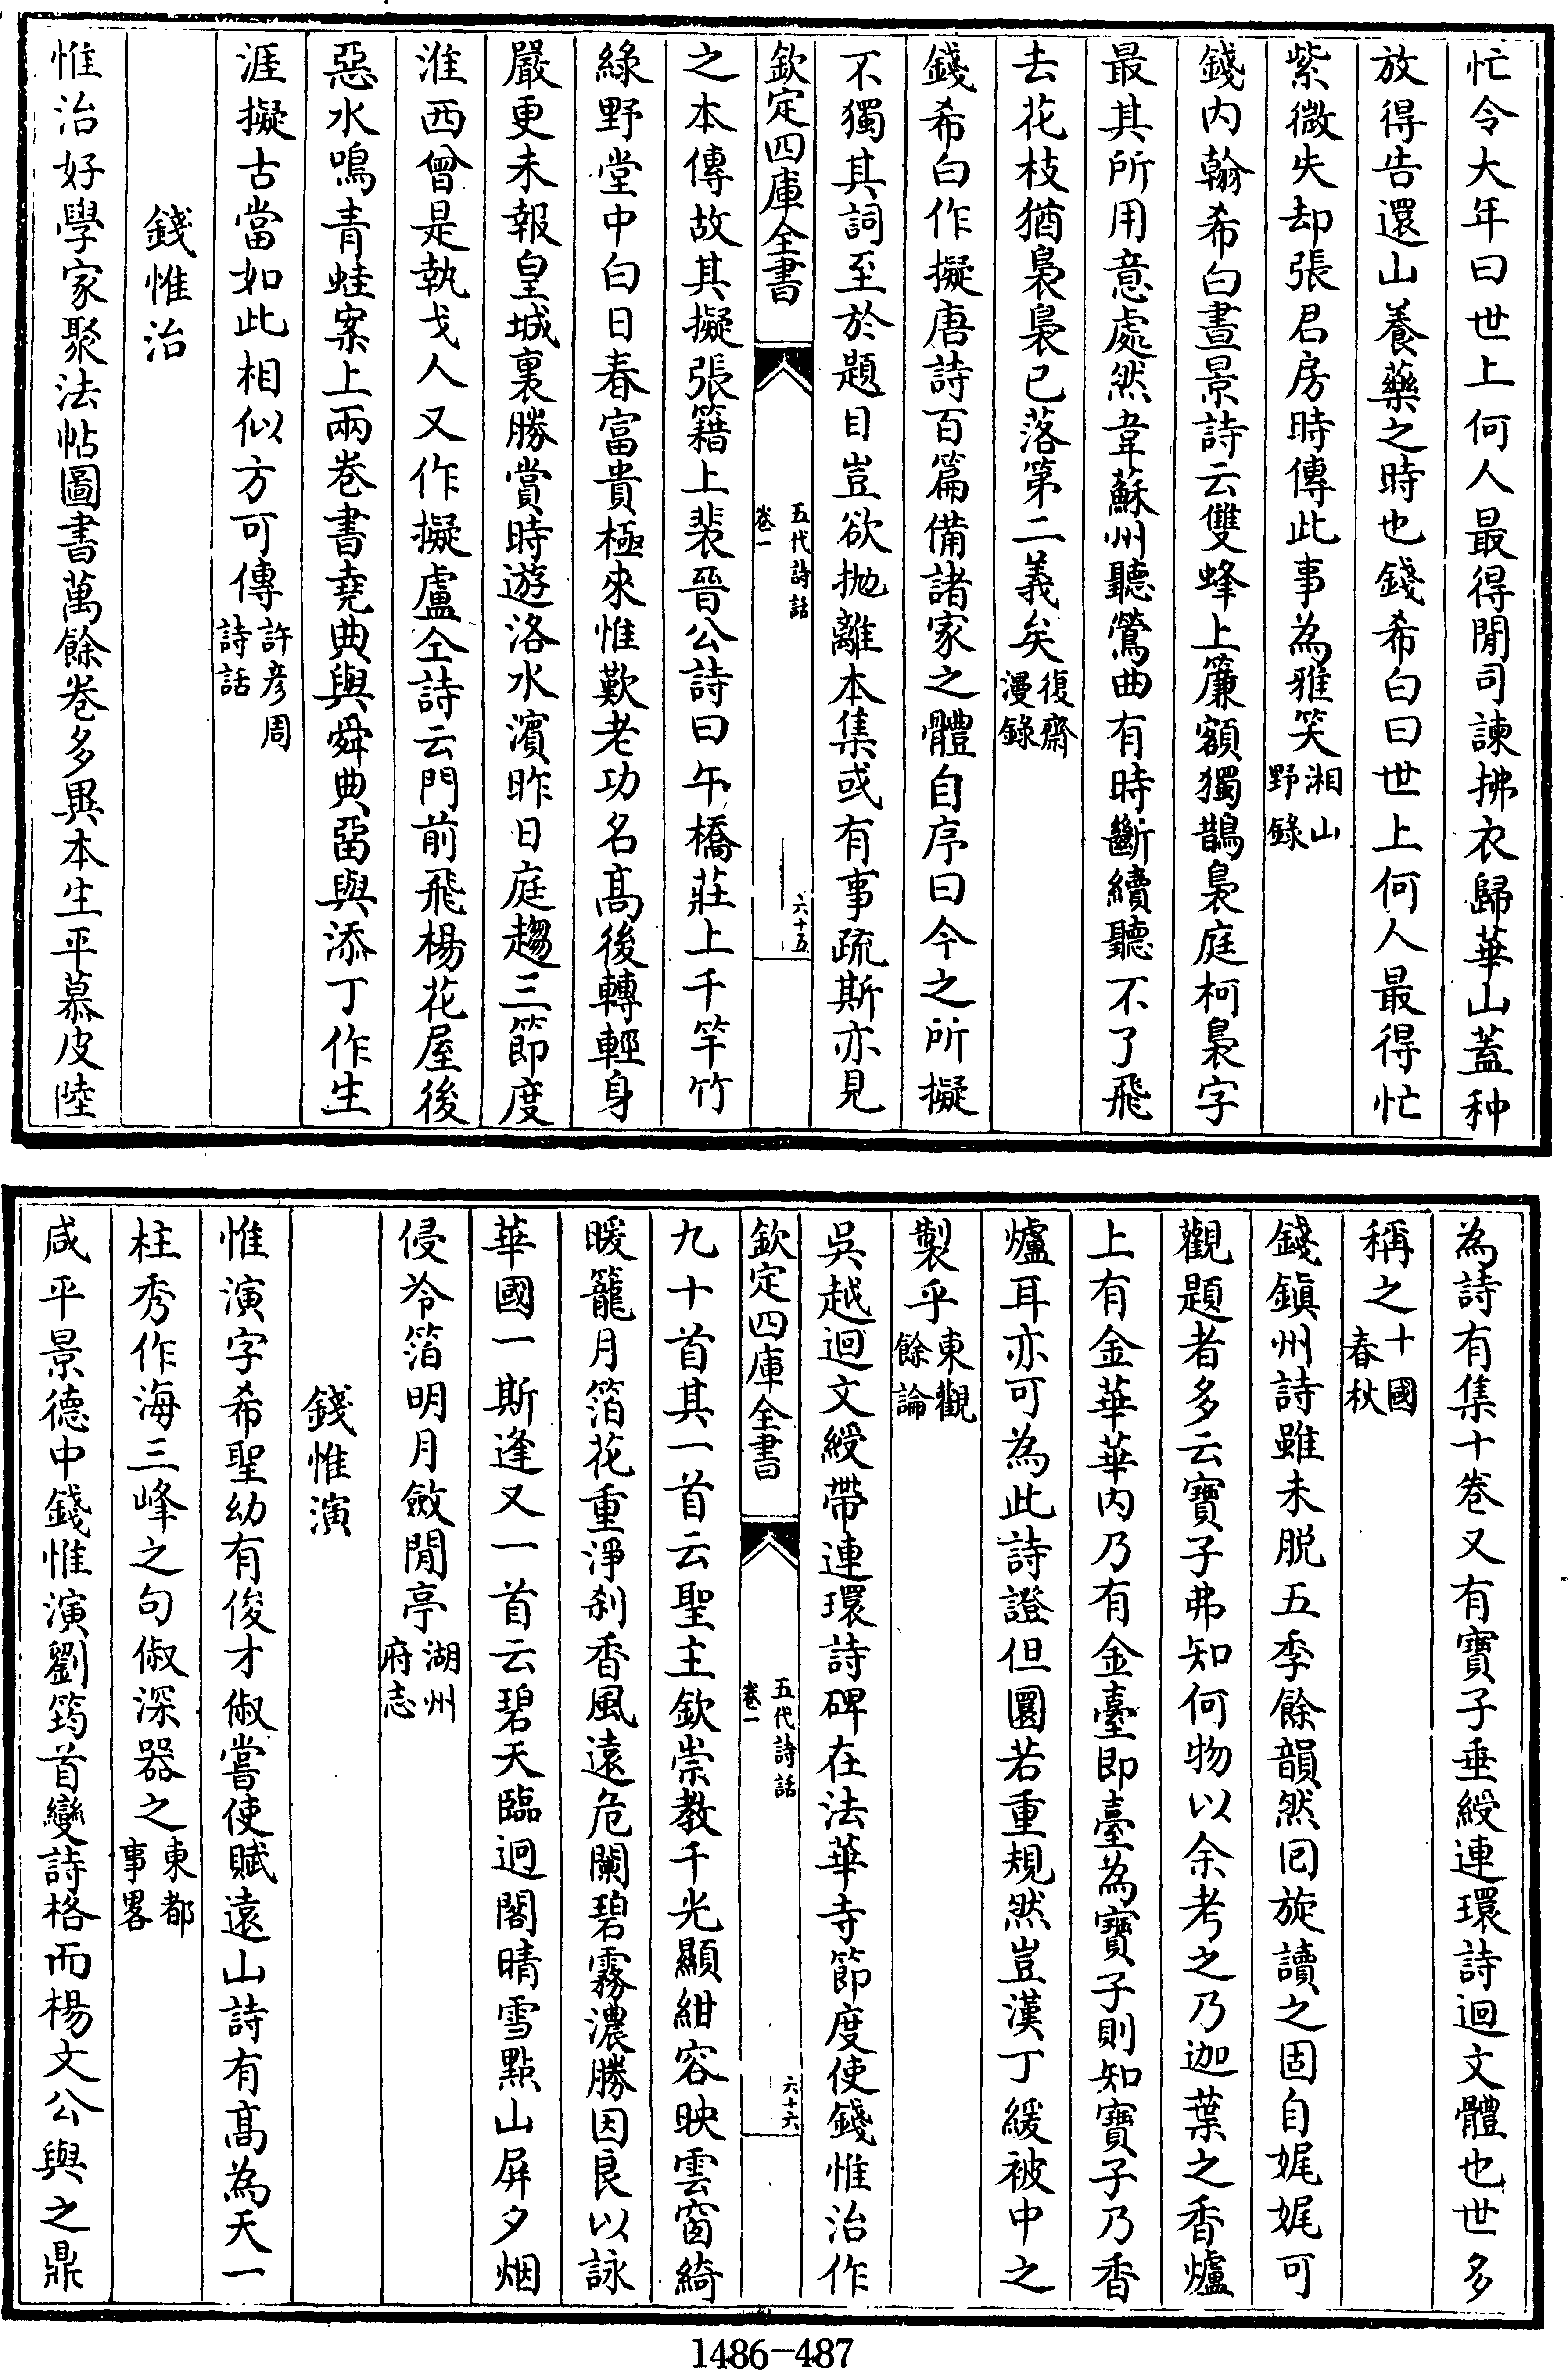 忙令大年曰世上何人最得閒司諫拂衣歸華山蓋种
放得告還山養藥之時也錢希白曰世上何人最得忙
紫微失却張君房時傳此事為雅笑湘山野錄
錢内翰希白晝景詩云雙蜂上簾額獨鵲裊庭柯裊字
最其所用意處然韋蘇州聽鶯曲有時斷續聽不了飛
去花枝猶裊裊已落第二義矣復齋漫錄
錢希白作擬唐詩百篇備諸家之體自序曰今之所擬
不獨其詞至於題目豈欲拋離本集或有事疏斯亦見
欽定四庫全書
五代詩話
卷一
六十五
之本傳故其擬張籍上裴晉公詩曰午橋莊上千竿竹
綠野堂中白日春富貴極來惟歎老功名高後轉輕身
嚴更未報皇城裏勝賞時遊洛水濱昨日庭趨三節度
淮西曾是執戈人又作擬盧仝詩云門前飛楊花屋後
惡水鳴青蛙案上兩卷書堯典與舜典留與添丁作生
涯擬古當如此相似方可傳許彥周詩話
錢惟治
惟治好學家聚法帖圖書萬餘卷多異本生平慕皮陸
為詩有集十卷又有寶子垂綬連環詩迴文體也世多
稱之十國春秋
錢鎮州詩雖未脫五季餘韻然囘旋讀之固自娓娓可
觀題者多云寶子弗知何物以余考之乃迦葉之香爐
上有金華華内乃有金臺即臺為寶子則知寶子乃香
爐耳亦可為此詩證但圜若重規然豈漢丁緩被中之
製乎東觀餘論
吳越迴文綬帶連環詩碑在法華寺節度使錢惟治作
欽定四庫全書
五代詩話
卷一
六十六
九十首其一首云聖主欽崇教千光顯紺容映雲窗綺
暖籠月箔花重淨刹香風遠危闌碧霧濃勝因良以詠
華國一斯逢又一首云碧天臨迥閣晴雪點山屏夕烟
侵冷箔明月斂閒亭湖州府志
錢惟演
惟演字希聖幼有俊才俶嘗使賦遠山詩有高為天一
柱秀作海三峰之句俶深器之東都事畧
咸平景德中錢惟演劉筠首變詩格而楊文公與之鼎
1486-487